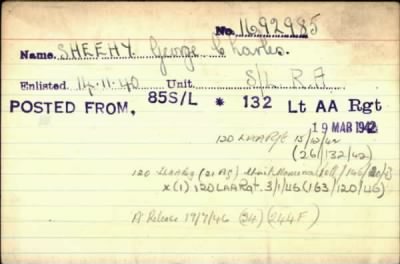 No. 1692985
Name. SHEEHY. George Charles.
Enlisted 14.11.40 Unit S/L R.A
POSTED FROM, 85S/L * 132 Lt AA Rgt
19 MAR 1942
120 LAA Rgt 15/12/42
(26/132/42)
120 (21 AG)
X (1) 120 LAA Rgt. 3/1/46 (163/120/46)
A Release 17/7/46 (34) (244F)